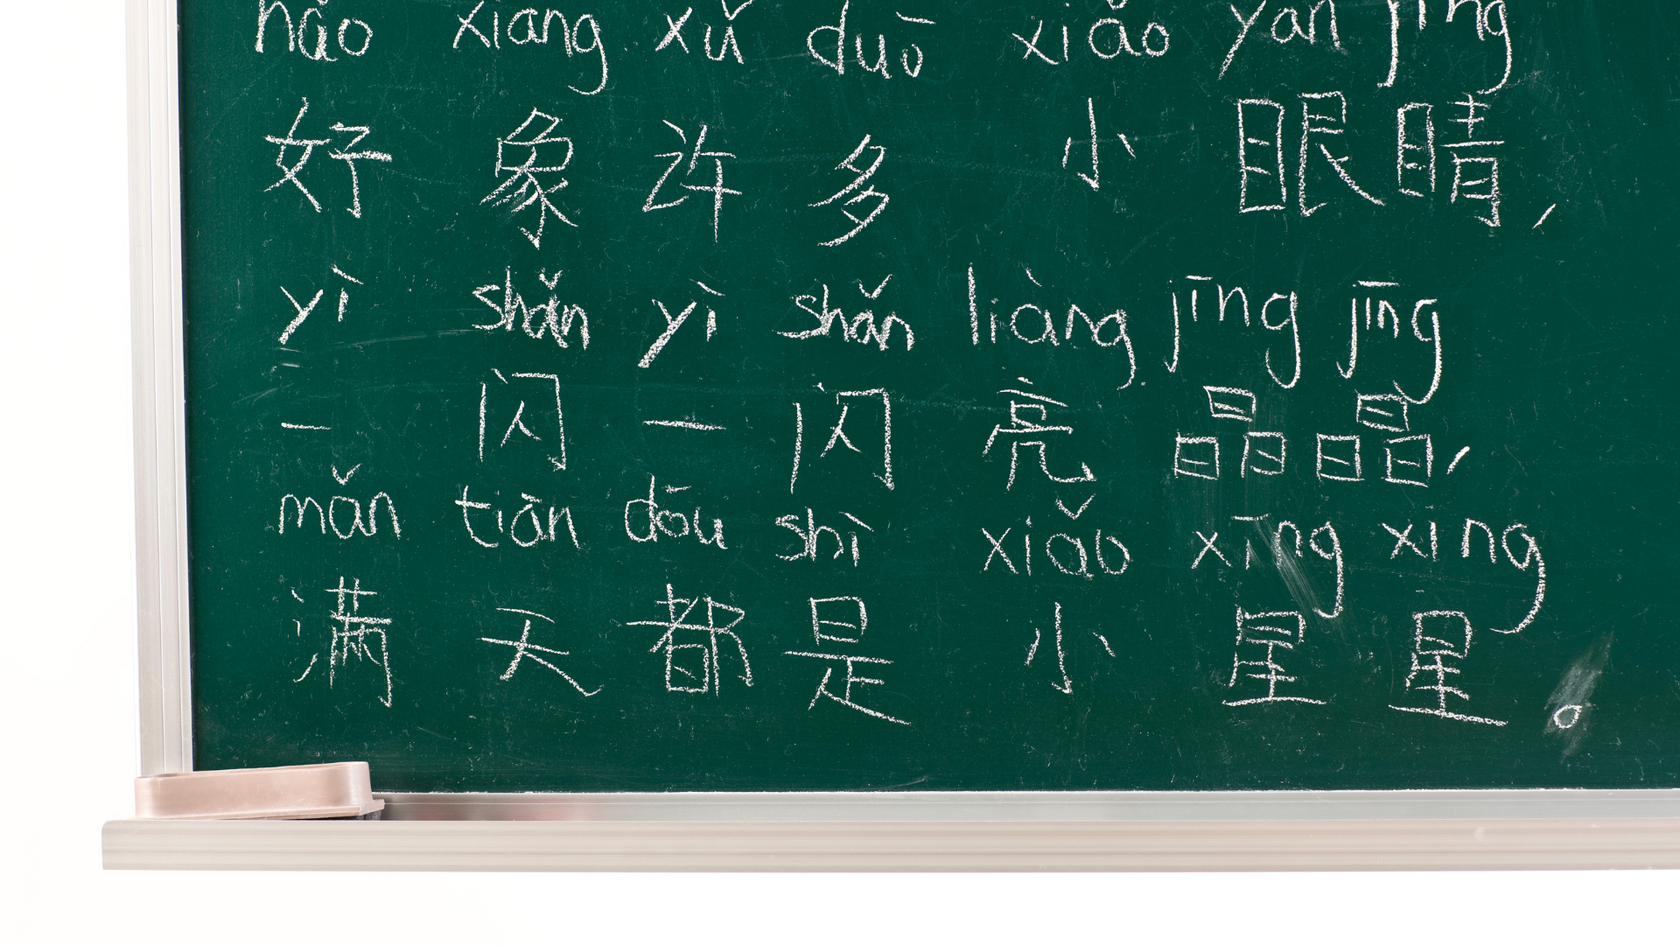 hǎo xiàng xǔ duō xiǎo yǎn jīng
好象许多 小眼睛，
yì shǎn yì shǎn liàng jīng jīng
一闪一闪亮晶晶，
mǎn tiān dōu shì xiǎo xīng xing
满天都是 小星星。